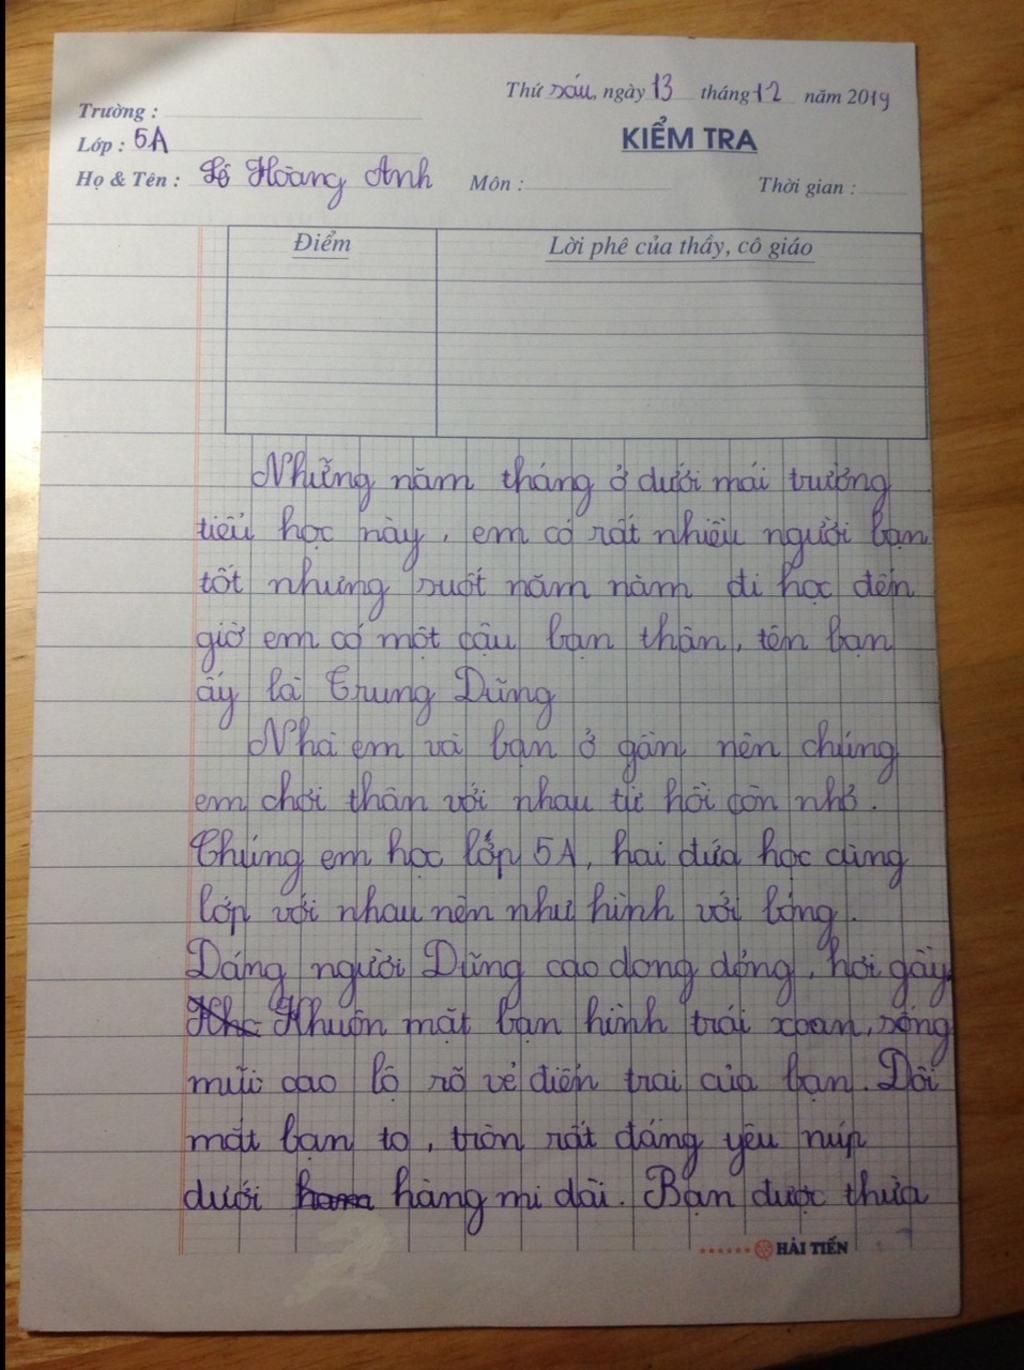 Thứ sáu, ngày 13 tháng 12 năm 2019
Trường :
Lớp : 5A
KIỂM TRA
Họ & Tên : Hoàng Anh Môn : Thời gian :
Điểm Lời phê của thầy, cô giáo
Những năm tháng ở dưới mái trường
tiểu học này, em có rất nhiều người bạn
tốt nhưng suốt năm năm đi học đến
giờ em có một cậu bạn thân, tên bạn
ấy là Trung Dũng
Nhà em và bạn ở gần nên chúng
em chơi thân với nhau từ hồi còn nhỏ.
Chúng em học lớp 5A, hai đứa học cùng
lớp với nhau nên như hình với bóng.
Dáng người Dũng cao dong dỏng, hơi gầy.
Khuôn mặt bạn hình trái xoan, sống
mũi cao lộ rõ vẻ điển trai của bạn. Đôi
mắt bạn to, tròn rất đáng yêu núp
dưới hàng mi dài. Bạn được thừa
HẢI TIẾN